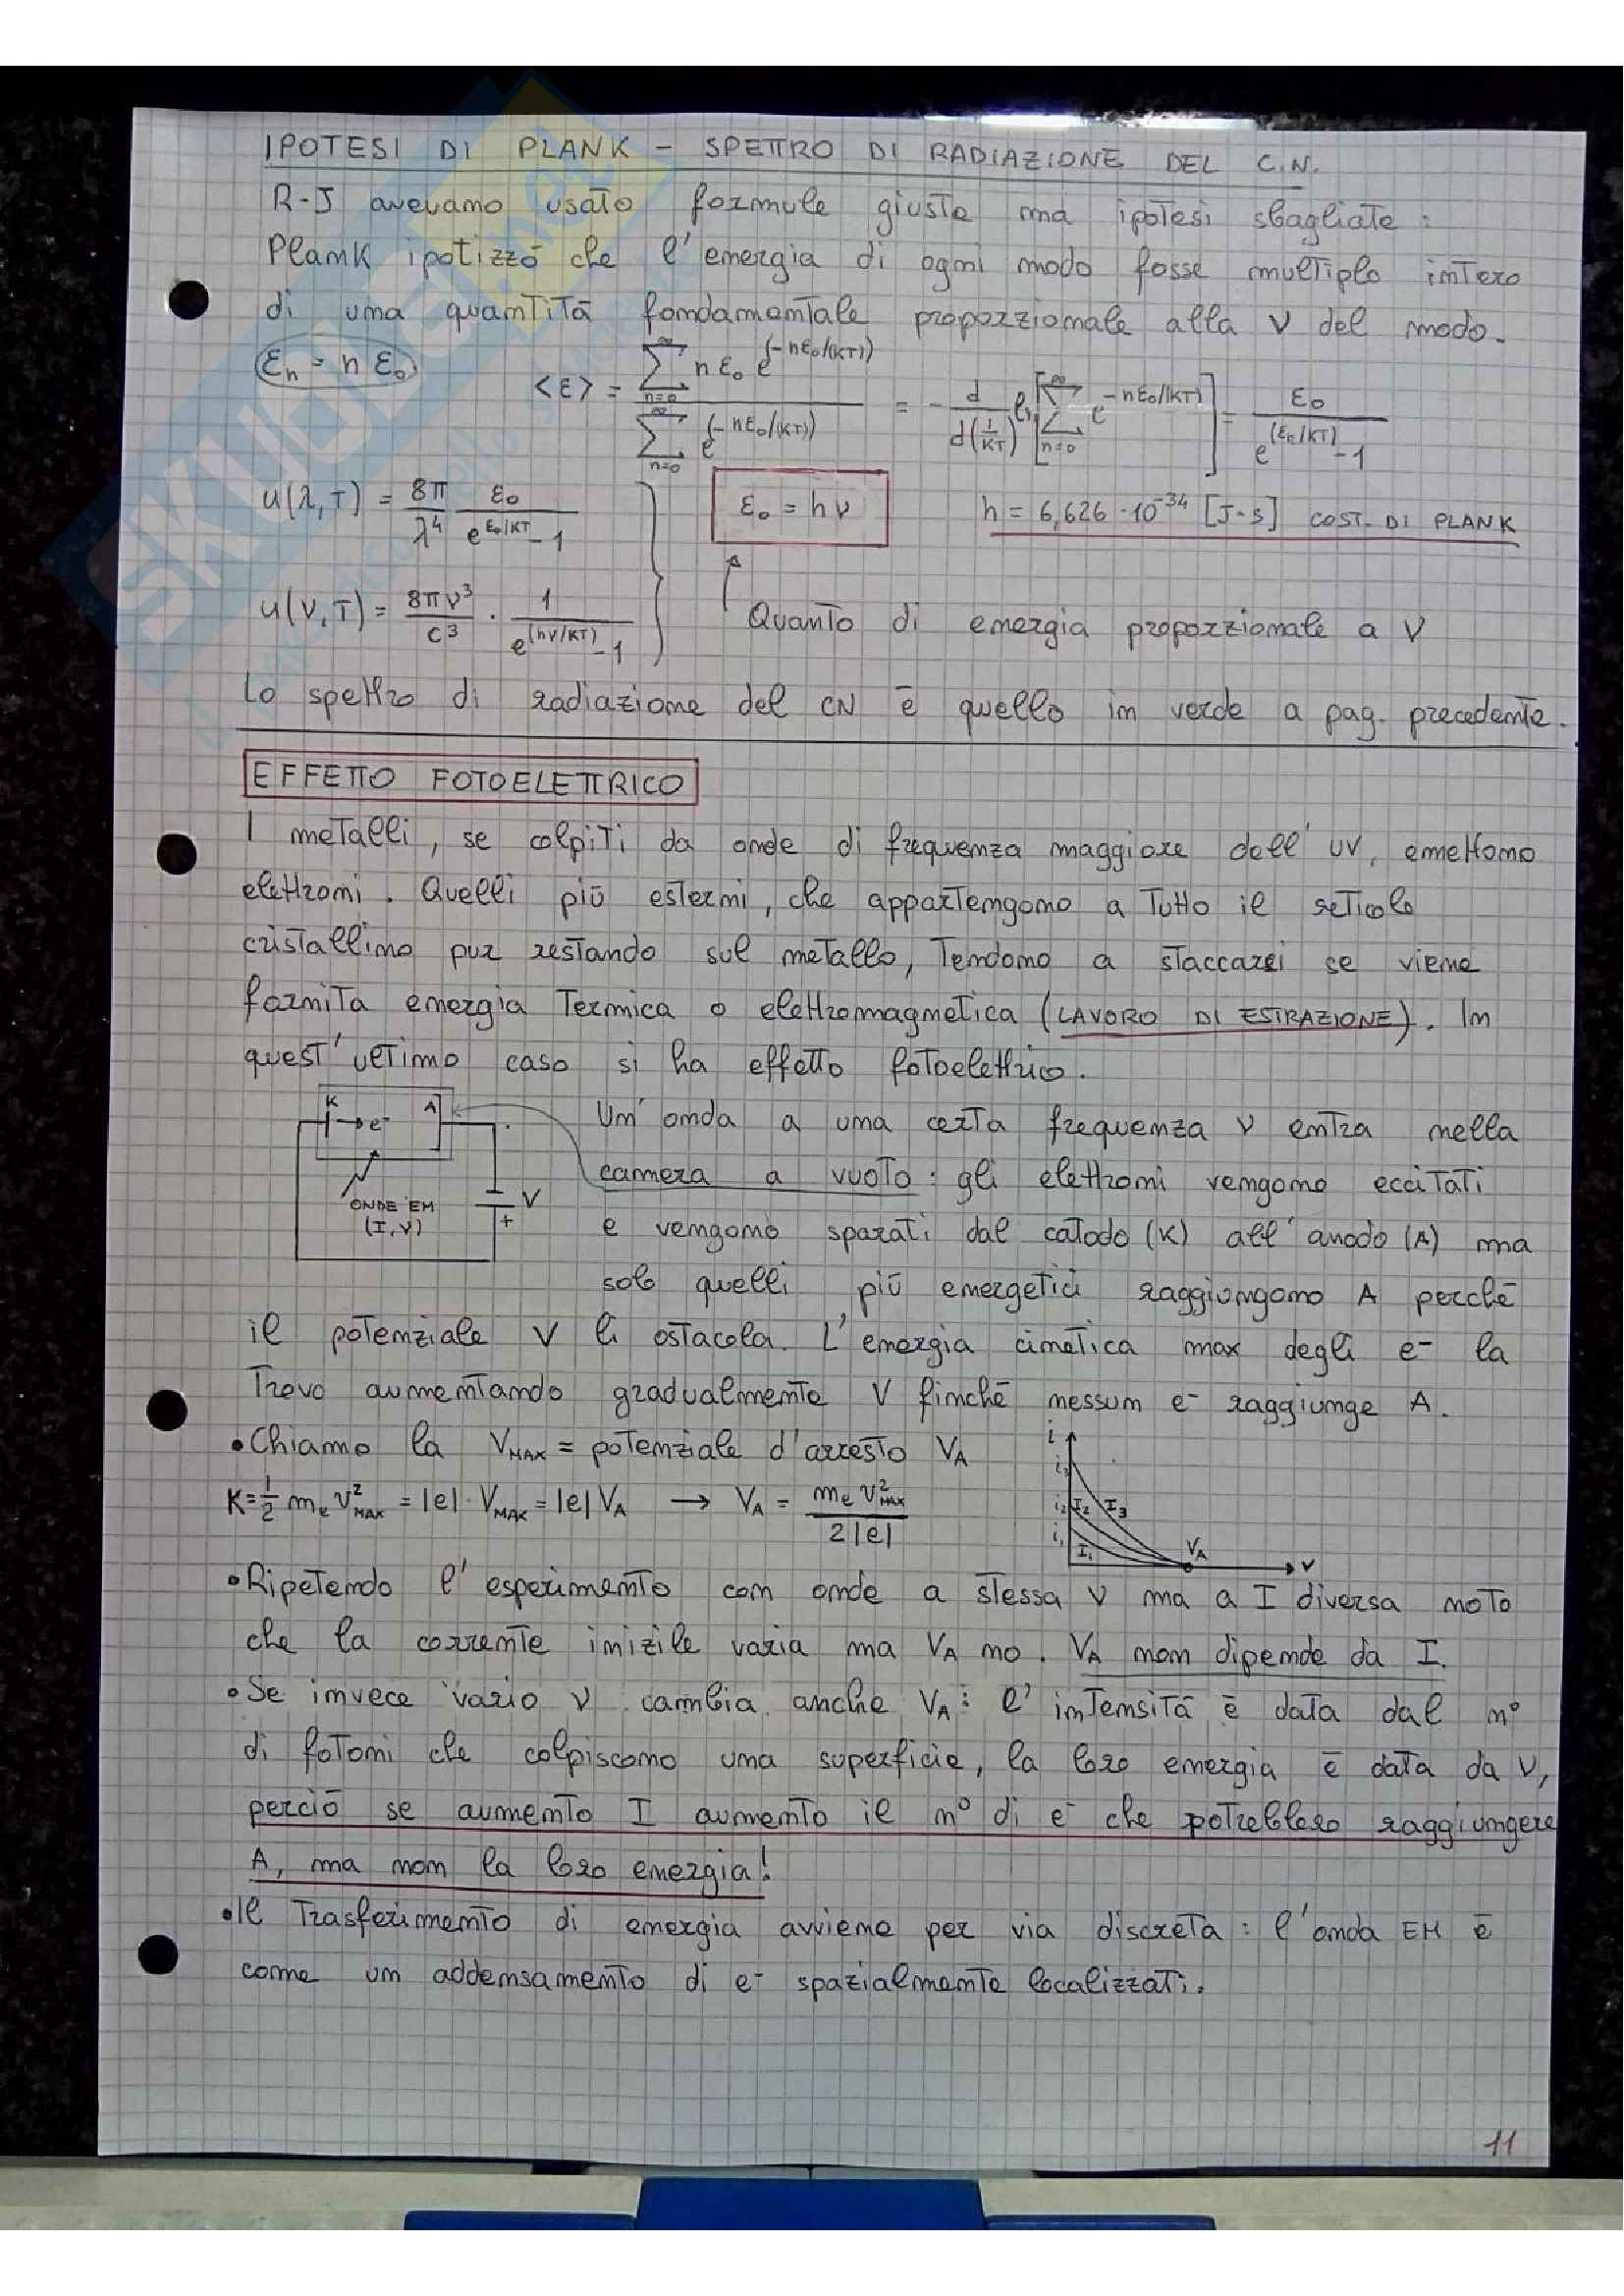 IPOTESI DI PLANK - SPETTRO DI RADIAZIONE DEL C.N.
R-J avevamo usato formule giuste ma ipotesi sbagliate:
Plank ipotizzò che l'energia di ogni modo fosse multiplo intero
di una quantità fondamentale proporzionale alla ν del modo.
εn = n ε0 <ε> = ∑n=0∞ n ε0 e^(-nε0/(KT)) / ∑n=0∞ e^(-nε0/(KT)) = - d/d(1/KT) ln[∑n=0∞ e^(-nε0/KT)] = ε0 / (e^(ε0/KT) - 1)
u(λ,T) = 8π/λ⁴ ε0/(e^(ε0/KT) - 1) ε0 = hν h = 6,626 · 10⁻³⁴ [J·s] COST. DI PLANK
u(ν,T) = 8πν³/c³ · 1/(e^(hν/KT) - 1) Quanto di energia proporzionale a ν
Lo spettro di radiazione del CN è quello in verde a pag. precedente.
EFFETTO FOTOELETTRICO
I metalli, se colpiti da onde di frequenza maggiore dell'UV, emettono
elettroni. Quelli più esterni, che appartengono a tutto il reticolo
cristallino pur restando sul metallo, tendono a staccarsi se viene
fornita energia termica o elettromagnetica (LAVORO DI ESTRAZIONE). In
quest'ultimo caso si ha effetto fotoelettrico.
K → e⁻ A
ONDE EM
(I, ν)
V
+
Un'onda a una certa frequenza ν entra nella
camera a vuoto: gli elettroni vengono eccitati
e vengono sparati dal catodo (K) all'anodo (A) ma
solo quelli più energetici raggiungono A perché
il potenziale V li ostacola. L'energia cinetica max degli e⁻ la
trovo aumentando gradualmente V finché nessun e⁻ raggiunge A.
• Chiamo la VMAX = potenziale d'arresto VA
K = 1/2 me v²MAX = |e| · VMAX = |e| VA → VA = me v²MAX / 2|e|
i
i3
i2 I2 I3
i1 I1
VA
V
• Ripetendo l'esperimento con onde a stessa ν ma a I diversa noto
che la corrente inizile varia ma VA no. VA non dipende da I.
• Se invece vario ν cambia anche VA: l'intensità è data dal n°
di fotoni che colpiscono una superficie, la loro energia è data da ν,
perciò se aumento I aumento il n° di e⁻ che potrebbero raggiungere
A, ma non la loro energia!
• Il trasferimento di energia avviene per via discreta: l'onda EM è
come un addensamento di e⁻ spazialmente localizzati.
11
SKUOLA.net